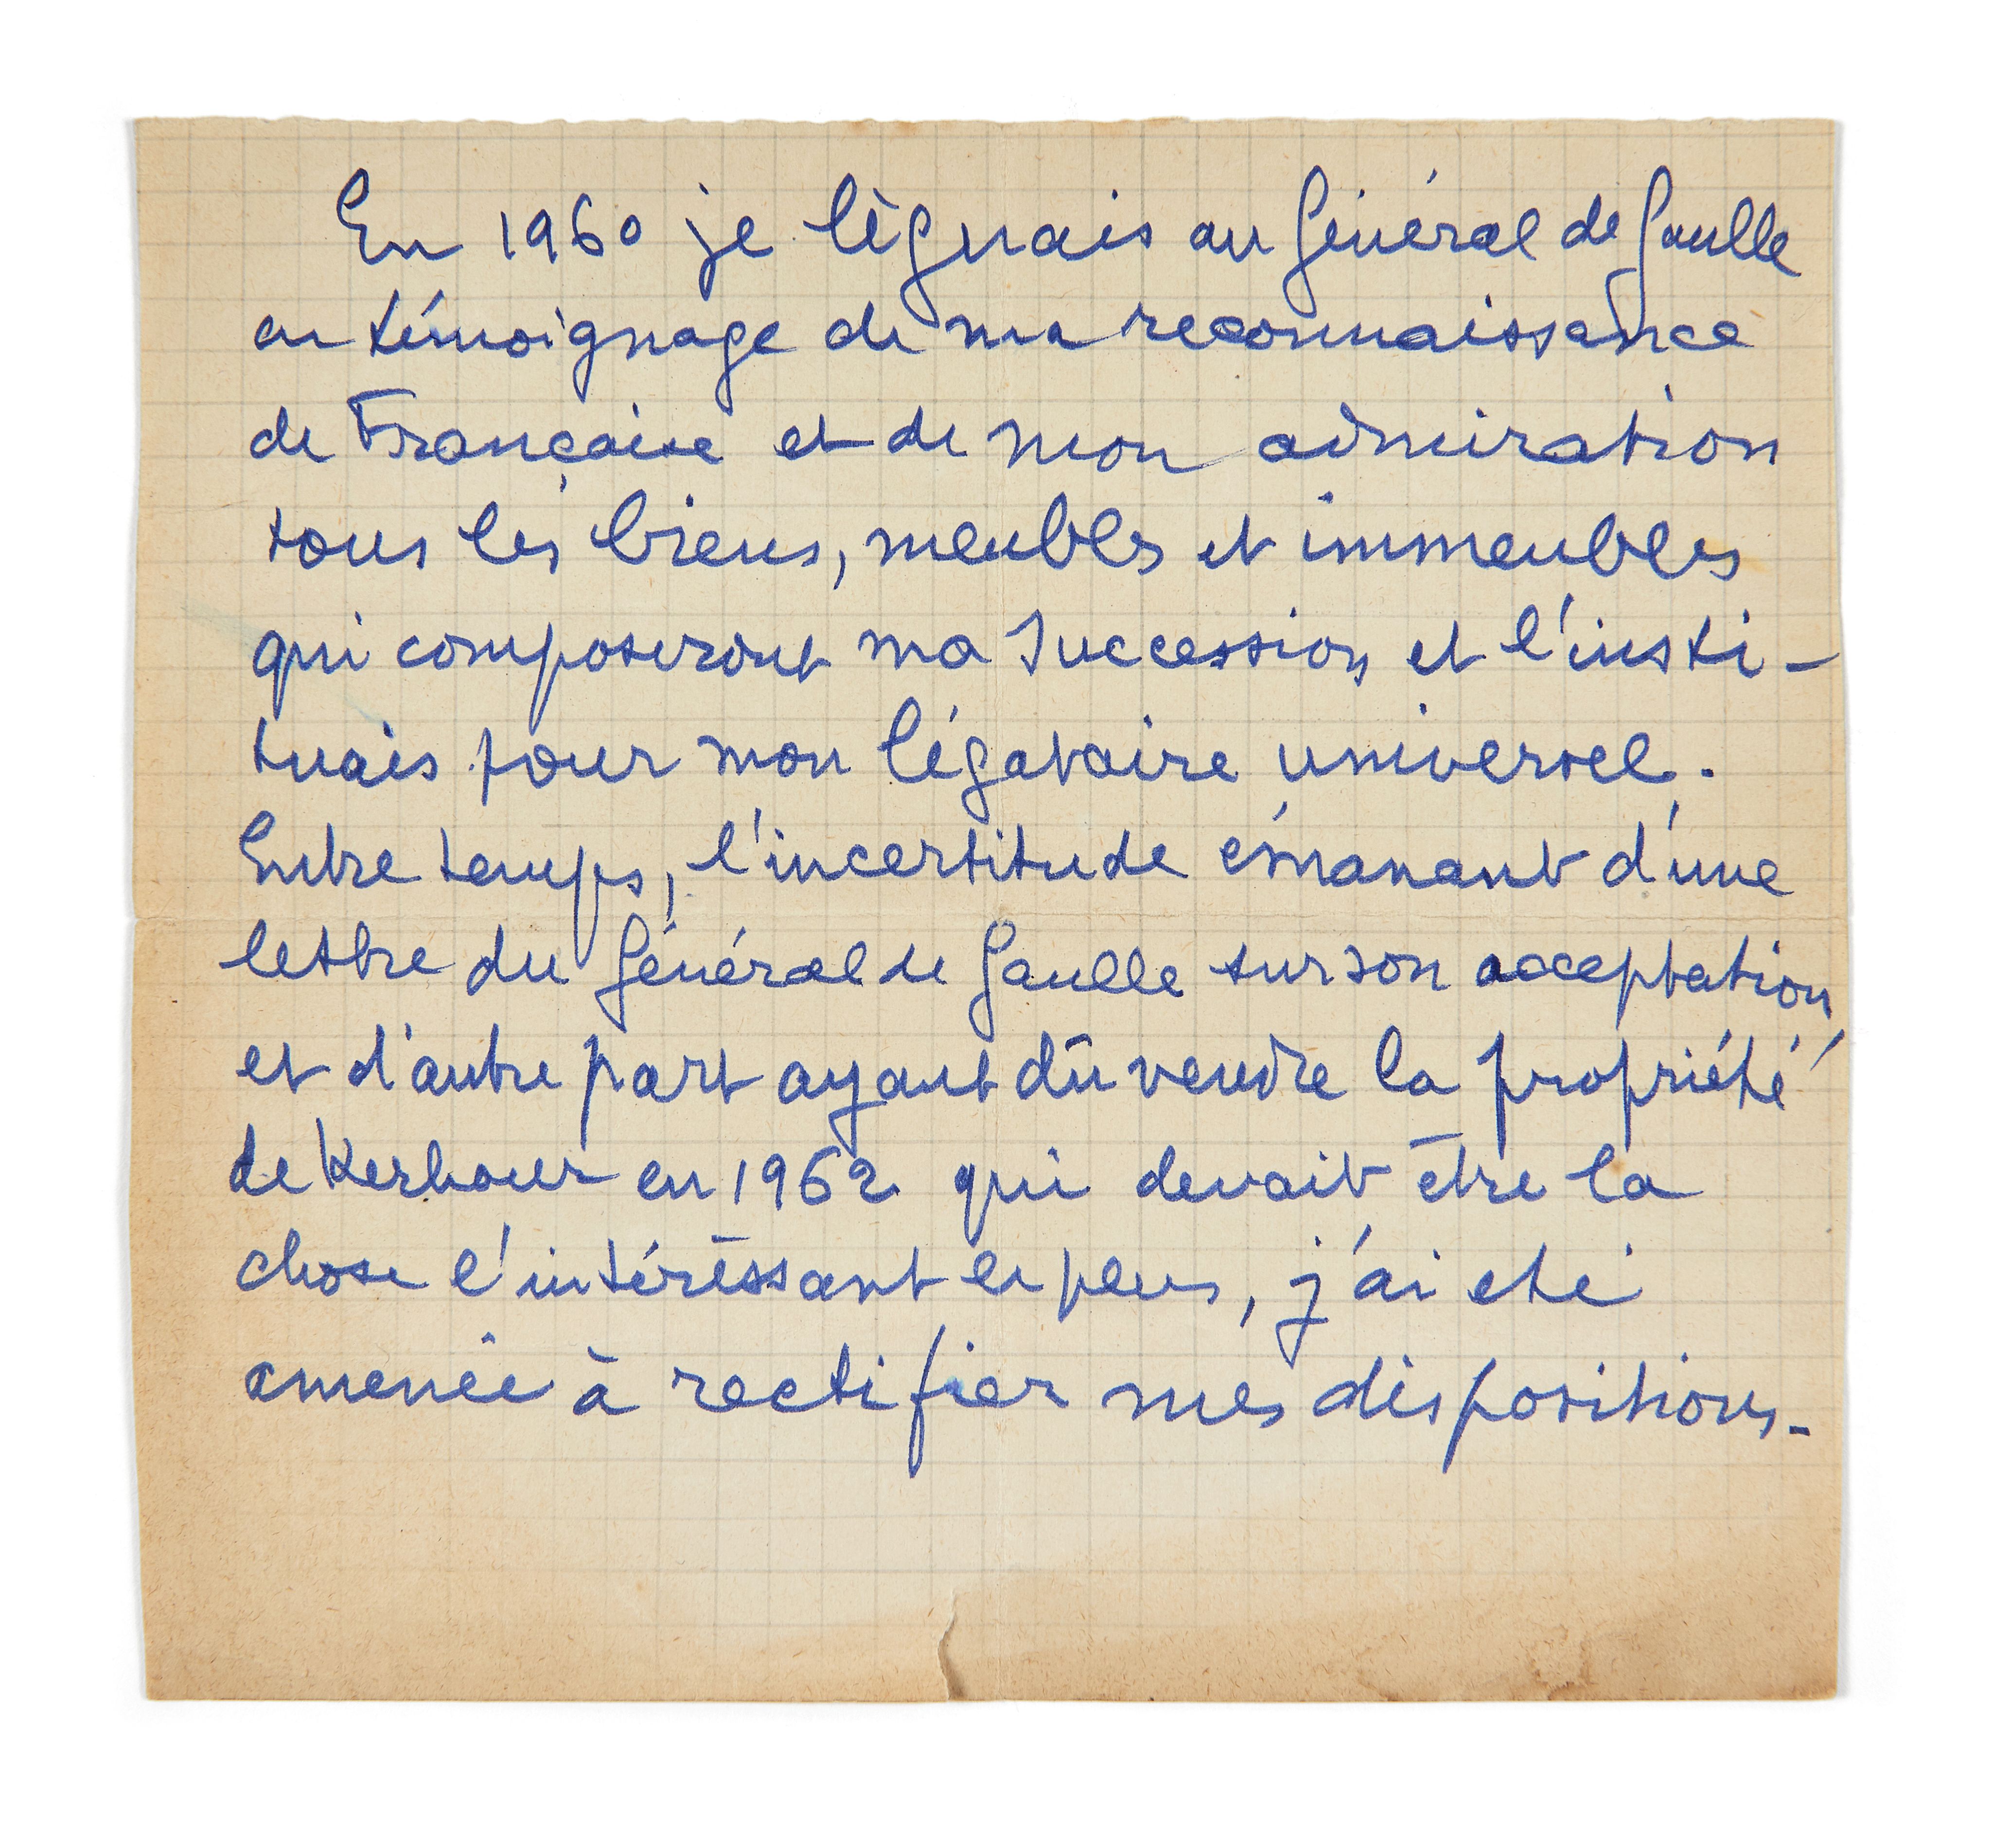 En 1960 je lèguais au Général de Gaulle
en témoignage de ma reconnaissance
de Française et de mon admiration
tous les biens, meubles et immeubles
qui composeront ma Succession et l'insti-
tuais pour mon légataire universel.
Entre temps, l'incertitude émanant d'une
lettre du Général de Gaulle sur son acceptation
et d'autre part ayant dû vendre la propriété
de en 1962 qui devait être la
chose l'intérêssant le plus, j'ai eté
amenée à rectifier mes dispositions.